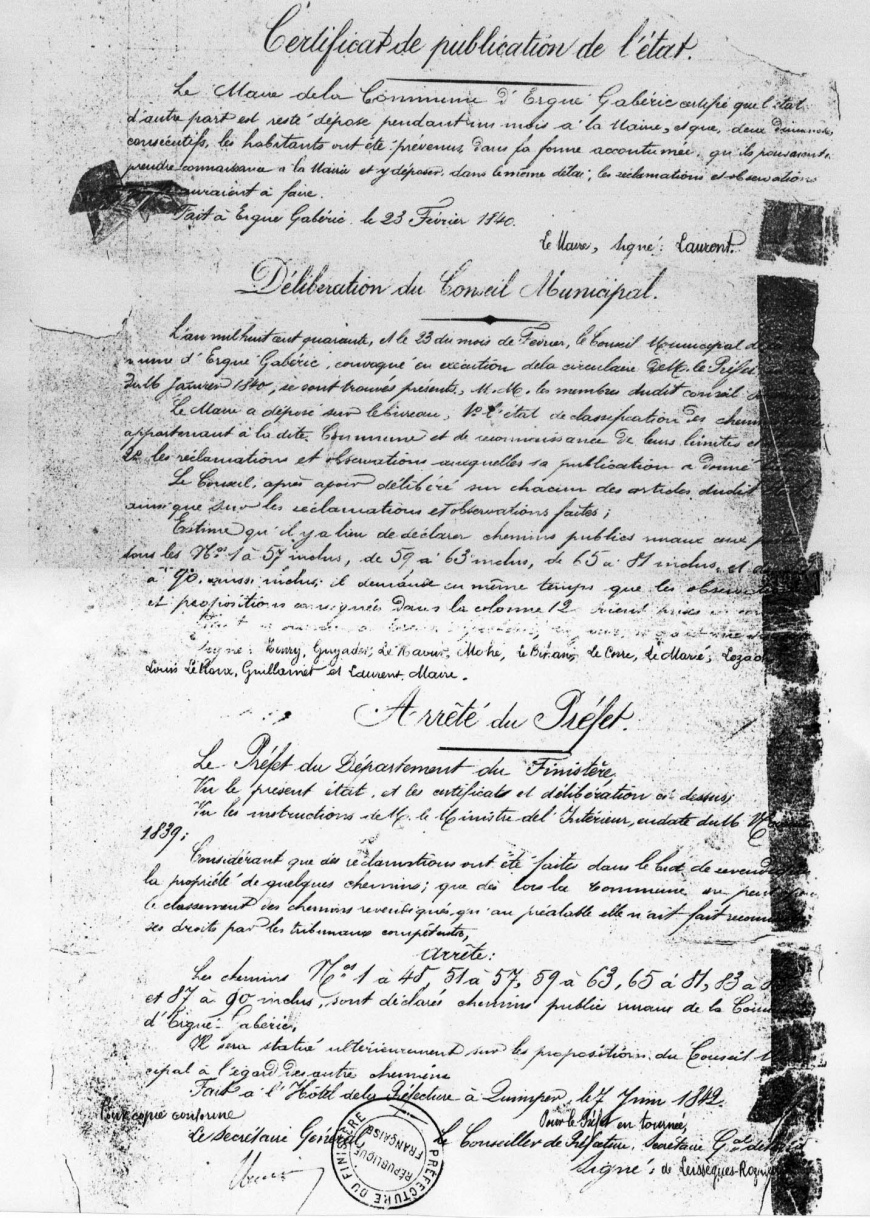 Certificat de publication de l'état.
Le Maire de la Commune d'Ergué Gabéric certifie que l'état
d'autre part est resté déposé pendant un mois à la Mairie, et que, deux dimanches
consécutifs, les habitants ont été prévenus dans la forme accoutumée, qu'ils pouvaient
prendre connaissance à la Mairie et y déposer, dans le même délai, les réclamations et observations
auraient à faire.
Fait à Ergué Gabéric le 23 Février 1840.
Le Maire, Signé: Laurent.
Délibération du Conseil Municipal.
L'an mil huit cent quarante, et le 23 du mois de Février, le Conseil Municipal de
d'Ergué Gabéric, convoqué en exécution de la circulaire de M. le Préfet
du 16 Janvier 1840, se sont trouvés présents, M.M. les membres dudit conseil
Le Maire a déposé sur le bureau, 1º l'état de classification des chemins
appartenant à la dite Commune et de reconnaissance de leurs limites et
2º les réclamations et observations auxquelles sa publication a donné
Le Conseil, après avoir délibéré sur chacun des articles dudit
ainsi que sur les réclamations et observations faites;
Estime qu'il y a lieu de déclarer chemins publics ruraux ceux
sous les Nos 1 à 57 inclus, de 59 à 63 inclus, de 65 à 81 inclus, et
à 90, aussi inclus; il demande en même temps que les observations
et propositions consignées dans la colonne 12 soient prises en
Signé: Henry, Guyader, Le Mahé, Le Corre, Le Marié,
Louis Le Roux, Guillamet et Laurent, Maire.
Arrêté du Préfet.
Le Préfet du Département du Finistère,
Vu le présent état, et les certificats et délibération ci-dessus;
Vu les instructions de M. le Ministre de l'Intérieur, en date du 16
1839;
Considérant que des réclamations ont été faites dans le but de revendiquer
la propriété de quelques chemins; que dès lors la Commune ne peut
le classement des chemins revendiqués, qu'au préalable elle n'ait fait reconnaître
ses droits par les tribunaux compétents,
Arrête:
Les chemins Nos 1 à 48, 51 à 57, 59 à 63, 65 à 81, 83 à
et 87 à 90 inclus, sont déclarés chemins publics ruraux de la Commune
d'Ergué-Gabéric,
Il sera statué ultérieurement sur les propositions du Conseil
cipal à l'égard des autre chemins
Fait à l'Hôtel de la Préfecture à Quimper, le 7 Juin 1842.
Pour copie conforme
Pour le Préfet en tournée,
Le Secrétaire Général
Le Conseiller de Préfecture, Secrétaire Gal
Signé: de Leissègues-Rozaven
PRÉFECTURE DU FINISTÈRE
RÉPUBLIQUE FRANÇAISE